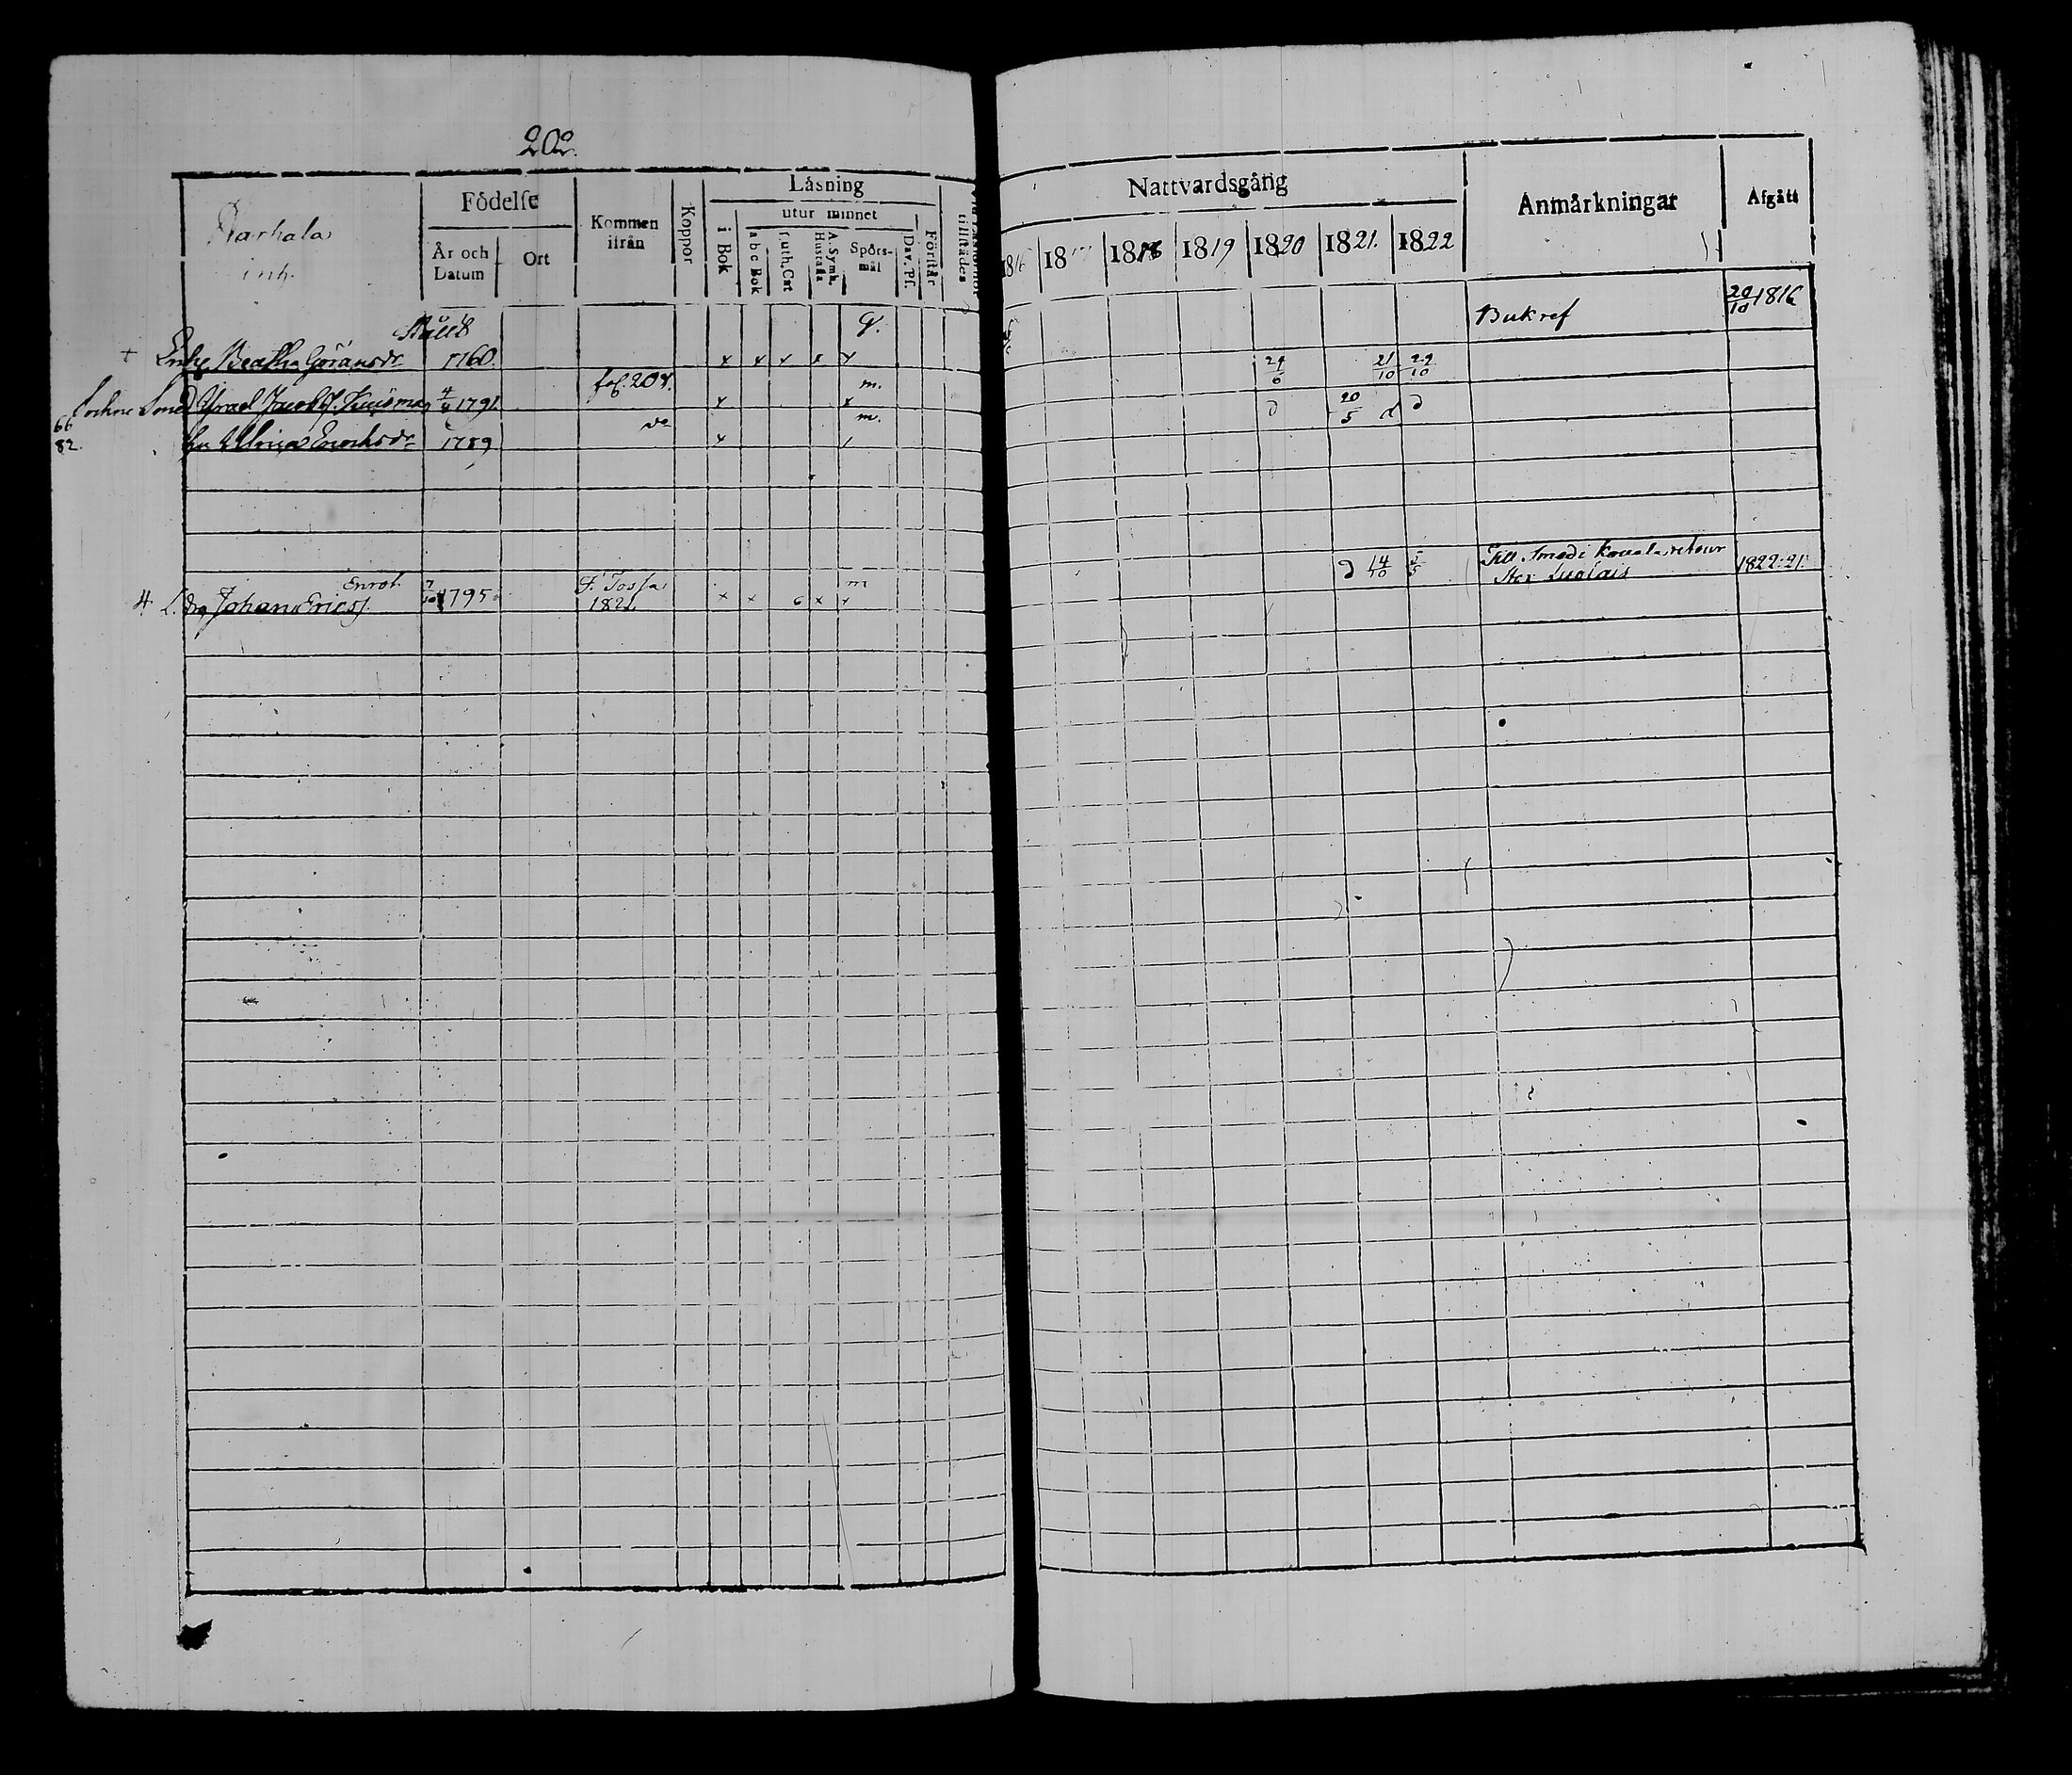 202.
Harhala
inh.
Födelse
År och Datum
Ort
Kommen ifrån
Koppor
Läsning
i Bok
utur minnet
a b c Bok
Luth. Cat
A. Symb. Hustafla
Spörs-mål
Dav. Pf.
Förstår
tillstädes
Nattvardsgång
1816 1817 1818 1819 1820 1821. 1822
Anmärkningar
Afgått
Enke Beatha Göransdr 1760. x x x x x G. 24/6 21/10 22/10 Bukref 20/10 1816
Sockne Smed Israel Jacobss. Kuisma 4/4 1791. fol. 204. x m. x
66
82.
hu Ulrica Enochsdr 1789 do x m. d 20/5 d d
4. L. drg Johan Ericss. Enroth 7/10 1795 F. Tossa 1821. x x 6 x x m d 14/10 5/5 Till Smedi Kouvala retour 1822: 21.